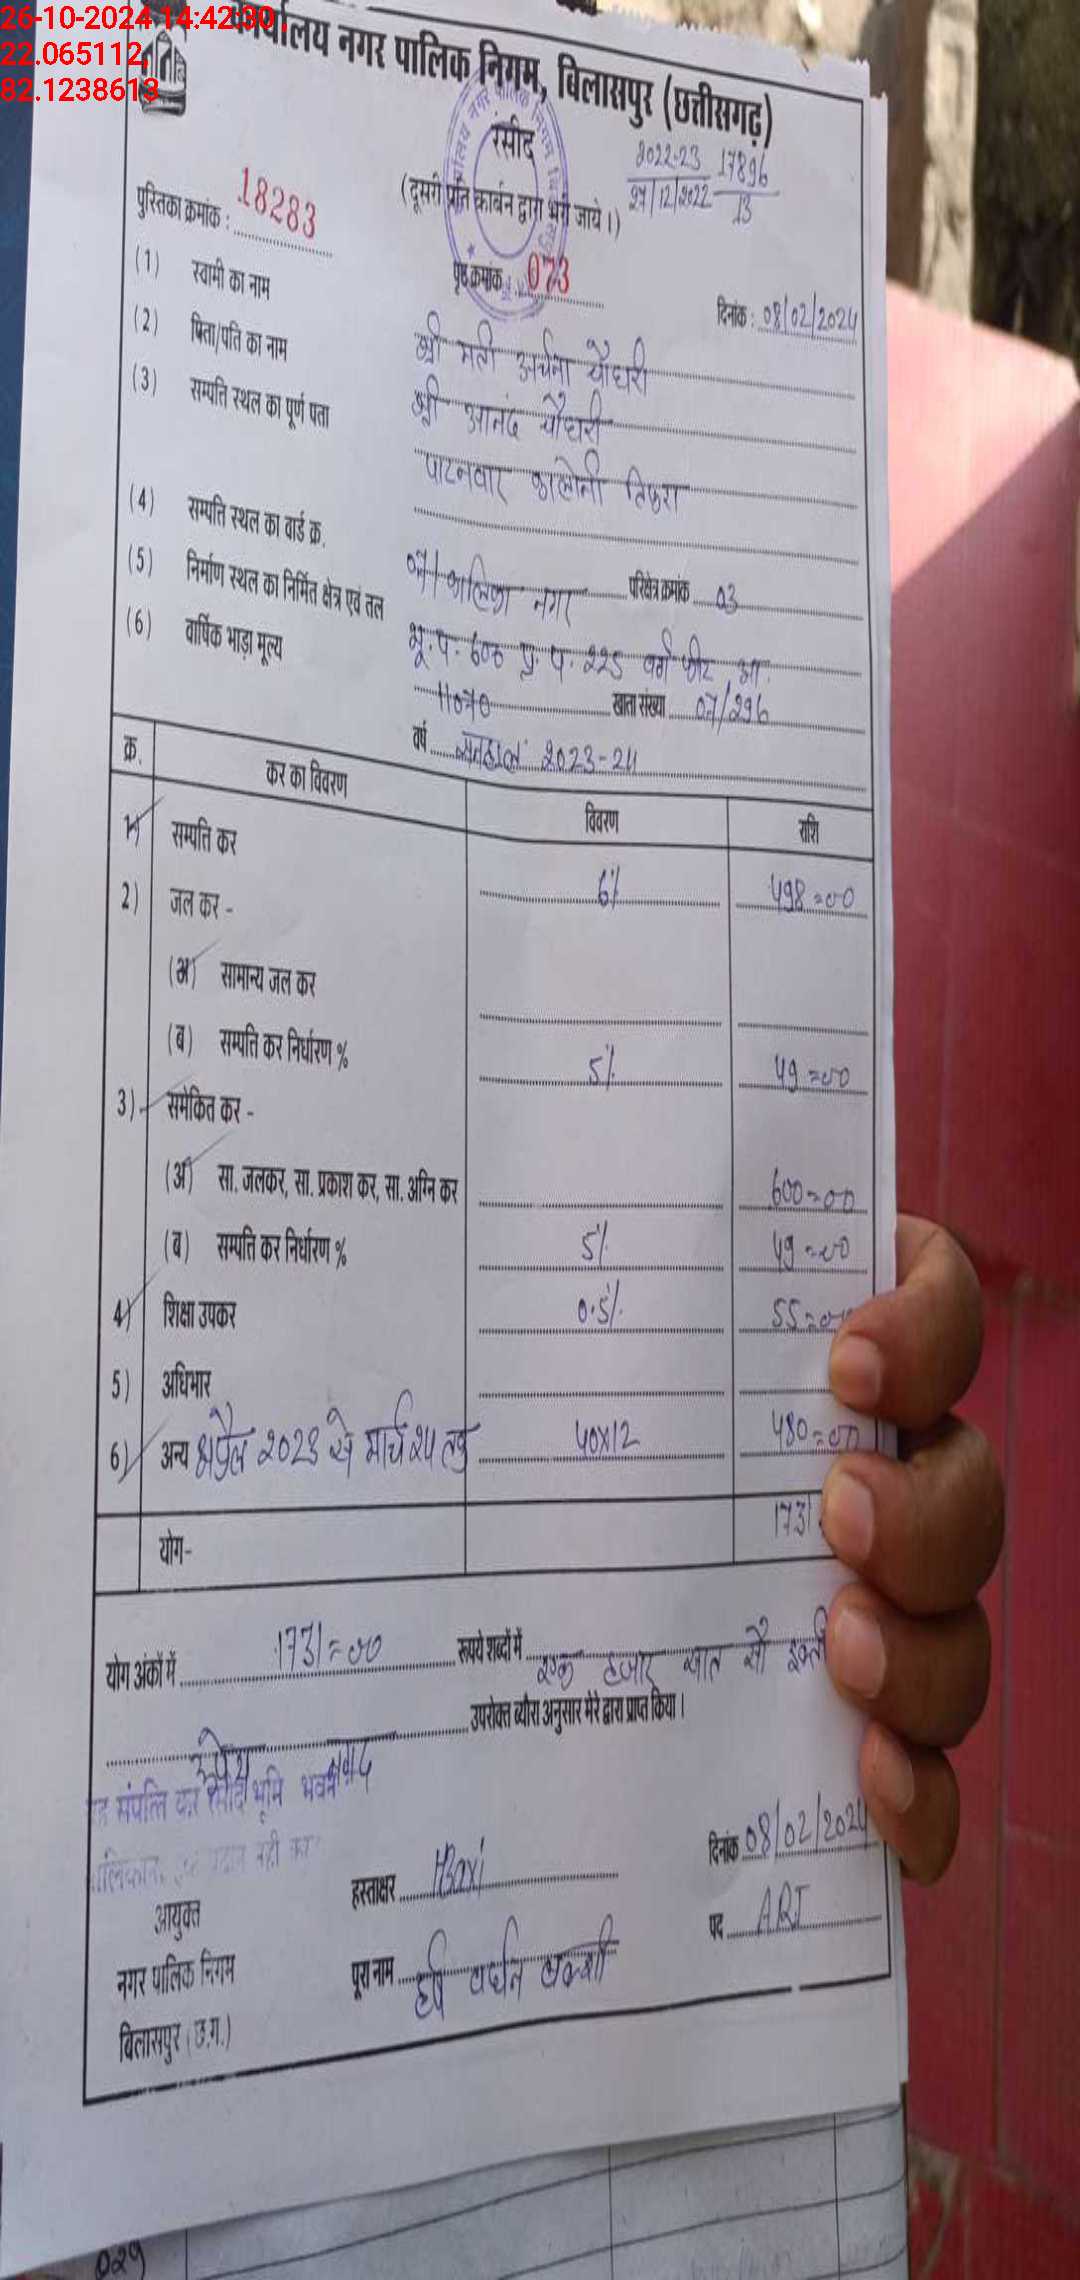 26-10-2024 14:42:30
22.065112,
82.1238613
कार्यालय नगर पालिक निगम, बिलासपुर (छत्तीसगढ़)
रसीद
(दूसरी प्रति कार्बन द्वारा भरी जाये।)
2022-23 17896
27/12/2022 13
पुस्तिका क्रमांक : 18283
पृष्ठ क्रमांक 073
दिनांक : 08/02/2024
(1) स्वामी का नाम श्री मती अर्चना चौधरी
(2) पिता/पति का नाम श्री आनंद चौधरी
(3) सम्पति स्थल का पूर्ण पता पाटनवार कालोनी तिफरा
(4) सम्पति स्थल का वार्ड क्र. 07 कालिका नगर परिक्षेत्र क्रमांक 03
(5) निर्माण स्थल का निर्मित क्षेत्र एवं तल भू.प. 600 प्र. प. 225 वर्ग फीट आ.
(6) वार्षिक भाड़ा मूल्य 11070 खाता संख्या 07/296
वर्ष हाल 2023-24
क्र. कर का विवरण विवरण राशि
1) सम्पत्ति कर 6% 498=00
2) जल कर -
(अ) सामान्य जल कर
(ब) सम्पति कर निर्धारण % 5% 49=00
3) समेकित कर -
(अ) सा. जलकर, सा. प्रकाश कर, सा. अग्नि कर 600=00
(ब) सम्पति कर निर्धारण % 5% 49=00
4) शिक्षा उपकर 0.5% 55=00
5) अधिभार
6) अन्य अप्रैल 2023 से मार्च 24 तक 40x12 480=00
योग- 1731
योग अंकों में 1731=00 रूपये शब्दों में एक हजार सात सौ इक्ती
रूपये उपरोक्त ब्यौरा अनुसार मेरे द्वारा प्राप्त किया।
संपत्ति कर रसीद भूमि भवन
नही कर
आयुक्त
नगर पालिक निगम
बिलासपुर (छ.ग.)
हस्ताक्षर HBaxi दिनांक 08/02/2024
पूरा नाम हर्ष वर्धन बक्शी पद ARI
029